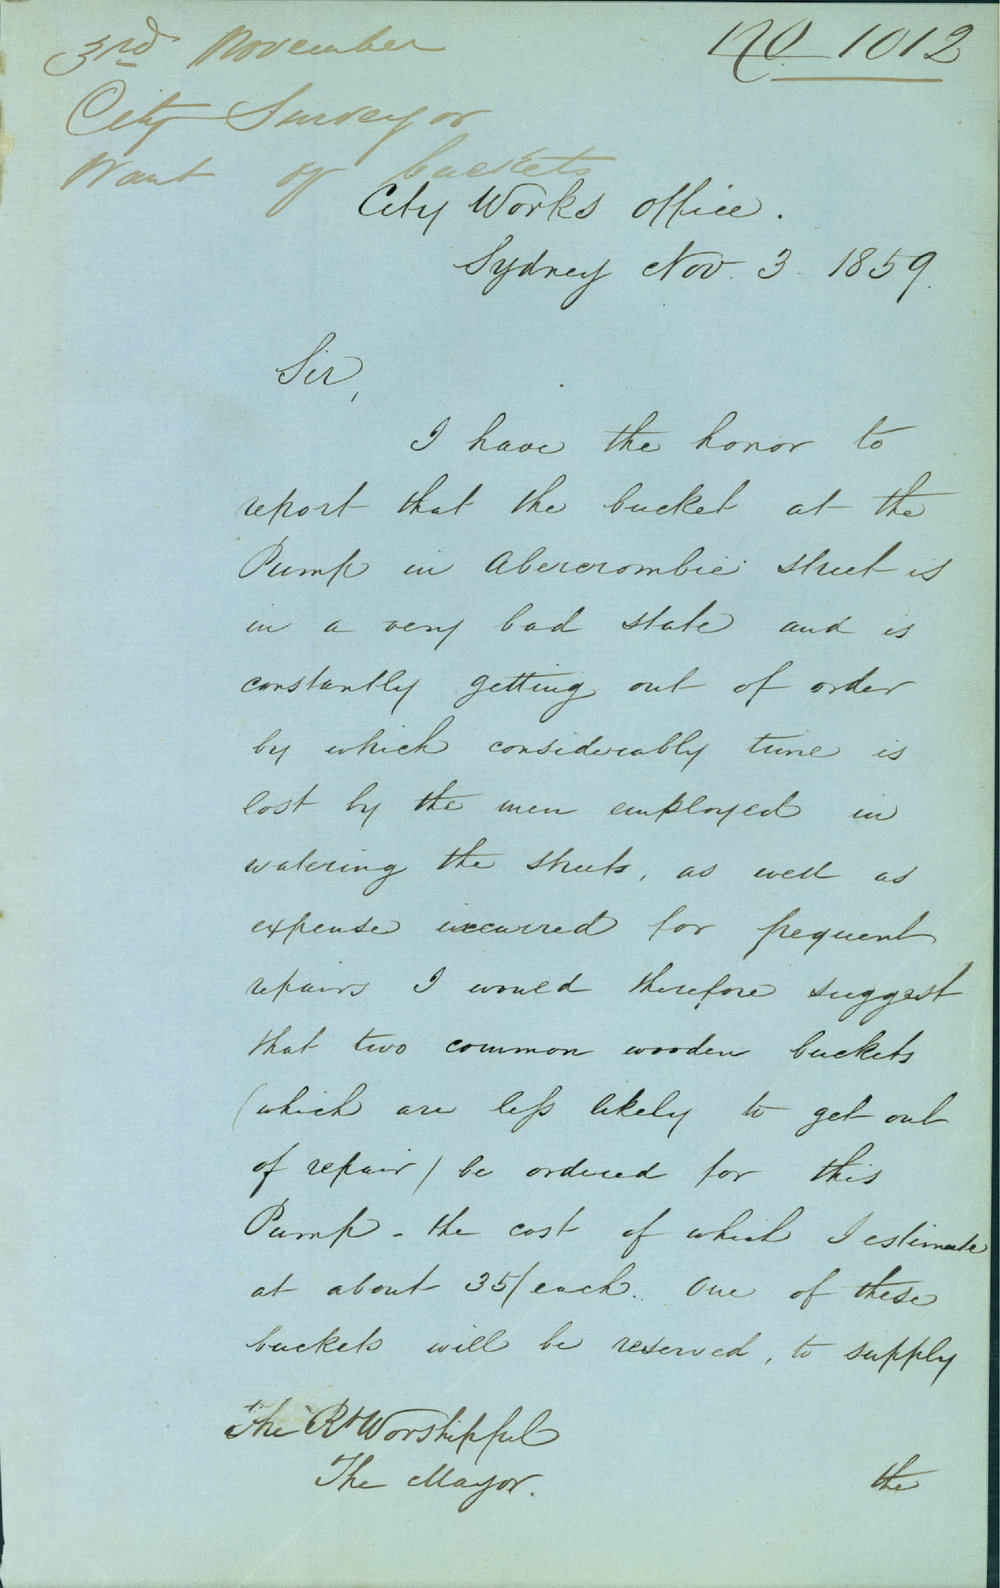 No 1012
3rd November
City Surveyor
Want of buckets
City Works Office.
Sydney Nov. 3. 1859.
Sir,
I have the honor to
report that the bucket at the
Pump in Abercrombie street is
in a very bad state and is
constantly getting out of order
by which considerably time is
lost by the men employed in
watering the streets, as well as
expense incurred for frequent
repairs I would therefore suggest
that two common wooden buckets
(which are less likely to get out
of repair) be ordered for this
Pump - the cost of which I estimate
at about 35/ each. One of these
buckets will be reserved, to supply
The Rt Worshipful
The Mayor.
the